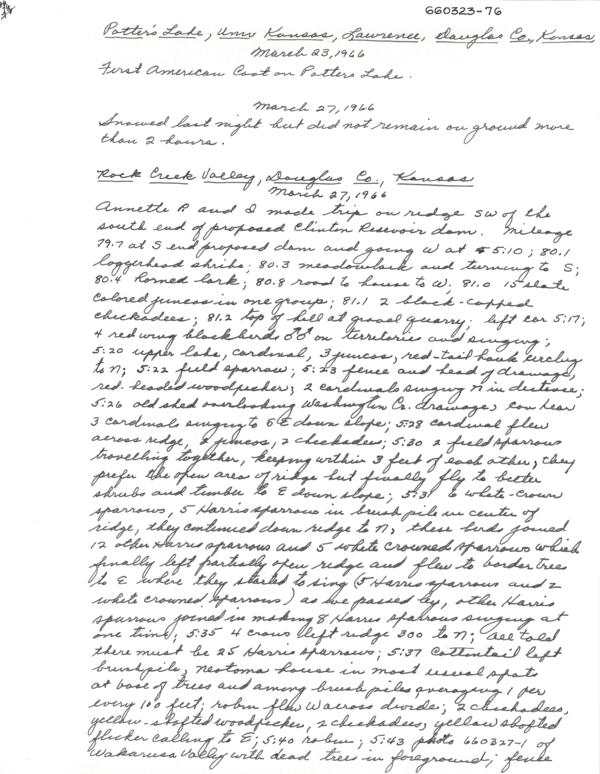 660323-76
Potter's Lake, Univ Kansas, Lawrence, Douglas Co., Kansas
March 23, 1966
First American Coot on Potters Lake.
March 27, 1966
Snowed last night but did not remain on ground more
than 2 hours.
Rock Creek Valley, Douglas Co., Kansas
March 27, 1966
Annette P and I made trip on ridge SW of the
south end of proposed Clinton Resevoir dam. Mileage
79.7 at S end proposed dam and going W at 5:10; 80.1
loggerhead shrike; 80.3 meadowlark and turning to S;
80.4 horned lark; 80.8 road to house to W; 81.0 15 slate
colored juncos in one group; 81.1 2 black-capped
chickadees; 81.2 top of hill at gravel quarry; left car 5:17;
4 red wing blackbirds ♂♂ on territories and singing;
5:20 upper lake, cardinal, 3 juncos, red-tail hawk circling
to N; 5:22 field sparrow; 5:23 fence and head of drainage,
red-headed woodpecker; 2 cardinals singing N in distance;
5:26 old shed overlooking Washington Cr. drainage, can hear
3 cardinals singing to SE down slope; 5:28 cardinal flew
across ridge, 2 juncos, 2 chickadees; 5:30 2 field sparrows
travelling together, keeping within 3 feet of each other, they
prefer the open area of ridge but finally fly to better
shrubs and timber to E down slope; 5:31 6 white-crown
sparrows, 5 Harris sparrows in brush pile in center of
ridge, they continued down ridge to N, these birds joined
12 other Harris sparrows and 5 white crowned sparrows which
finally left partially open ridge and flew to border trees
to E where they started to sing (5 Harris sparrows and 2
white crowned sparrows) as we passed by, other Harris
sparrows joined in making 8 Harris sparrows singing at
one time; 5:35 4 crows left ridge 300 to N; all told
there must be 25 Harris sparrows; 5:37 Cottontail left
brushpile, neotoma house in most usual spots
at base of trees and among brush piles averaging 1 per
every 100 feet; robin flew W across divide; 2 chickadees,
yellow-shafted woodpecker, 2 chickadees, yellow shafted
flicker calling to E; 5:40 robin; 5:43 photo 660327-1 of
Wakarusa Valley with dead trees in foreground; fence